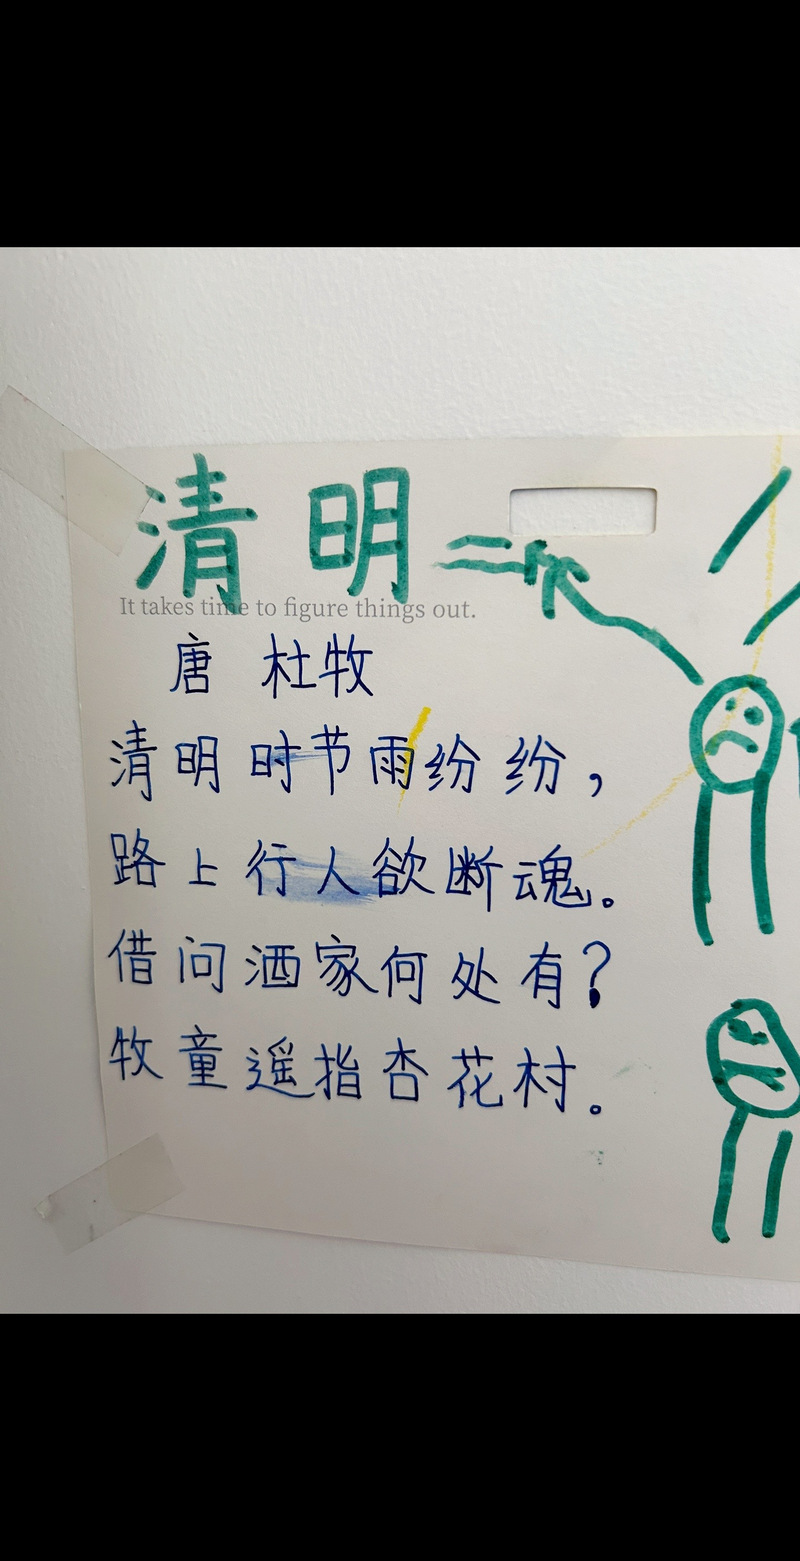 清明
It takes time to figure things out.
唐 杜牧
清明时节雨纷纷，
路上行人欲断魂。
借问酒家何处有？
牧童遥指杏花村。